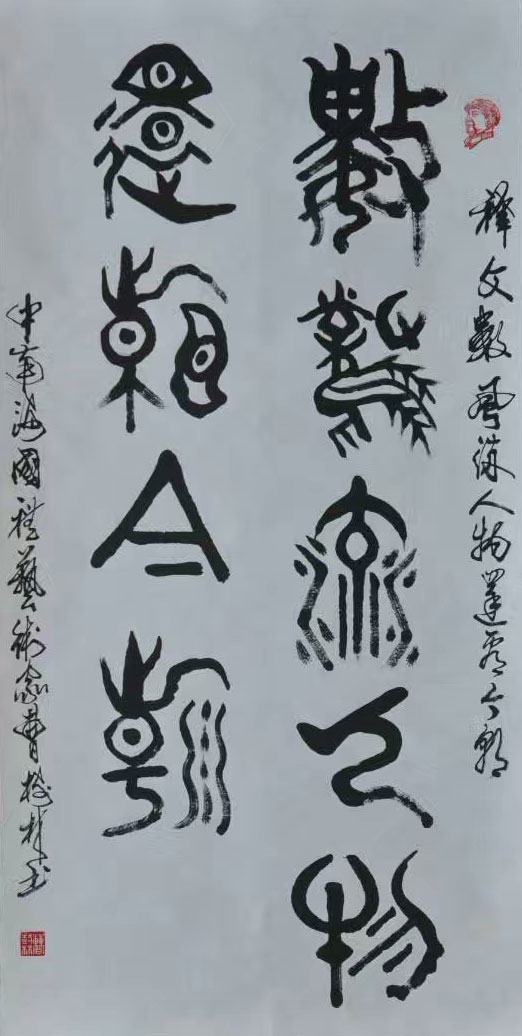 釋文數風流人物還看今朝
數風流人物
還看今朝
中南海國禮藝術家曹林書